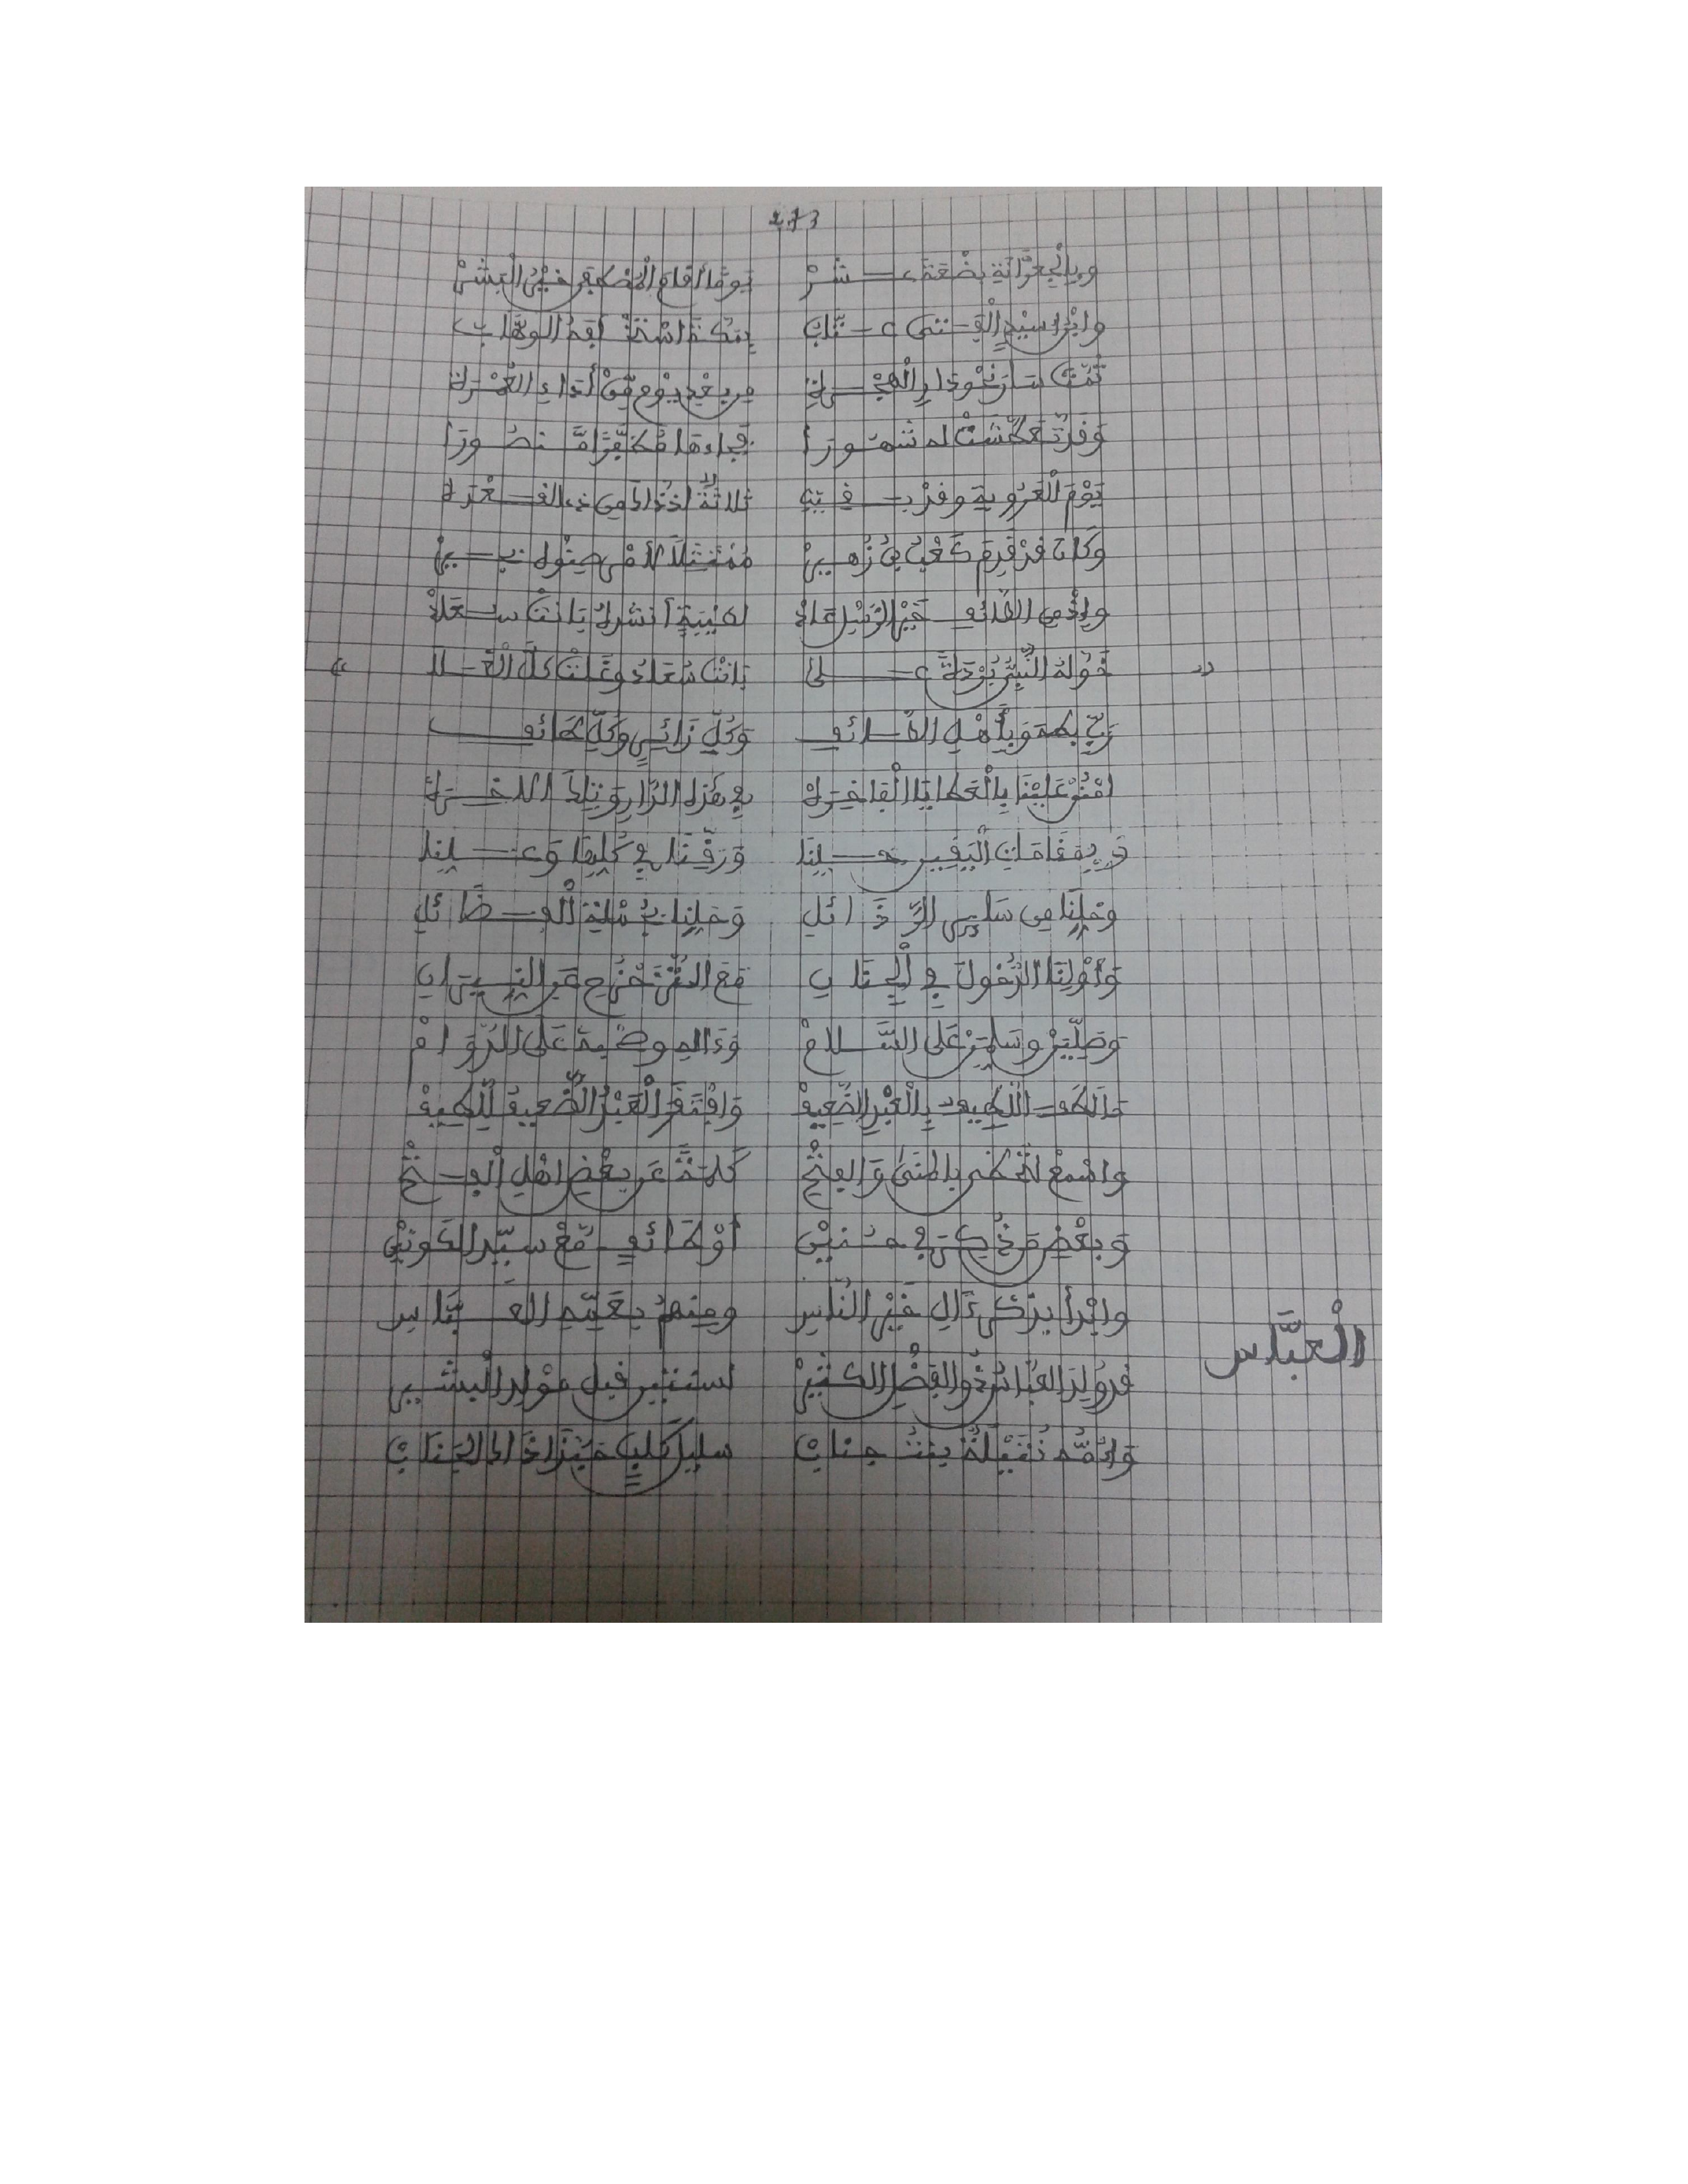 273
وبالجعرانة بضعة عشر يوما أقام المصطفى خير البشر
وابرا سيد الفتى عتاب بمكة أمه الوهاب
ثمت سار نحو دار الهجرة من بعد يوم من أداء العمرة
وقد تعطشت له شهورا فجاءها مظفرا منصورا
يوم العروبة وقد بقيت ثلاثة إذ ذاك من ذي القعدة
وكان قد قدم كعب بن زهير ممتثلا لأمر صنوه بجير
وإذ من الطائف خير الرسل عاد لطيبة أنشده بانت سعاد
خوله النبي بردة على بانت سعاد وغلت كل الغلا
رب بطه وبأهل الطائف وكل زائر وكل طائف
امنن علينا بالعطايا الفاخرة في هذه الدار وتلك الآخرة
ذي مقامات اليقين حلنا ورقنا في كلها وعلنا
وخلنا من سائر الرذائل وحلنا بجملة الفضائل
وأولنا الدخول في الجناب مع التنزح عن النيران
وصلين وسلمن على السلام وءاله وصحبه على الدوام
ذا لطف اللطيف بالعبد الضعيف وافتقر العبد الضعيف للطيف
واسمع لتظفر بالمنى والفتح كلمة عن بعض أهل الفتح
وبعض من ذكر في حنين أو طائف مع سيد الكونين
وابدأ بذكر ءال خير الناس ومنهم بعمه العباس
العباس
قد ولد العباس ذو الفضل الكثير لسنتين قبل مولد البشير
وأمه نتيلة بنت جناب سليل كلب حبذا ذاك الجناب